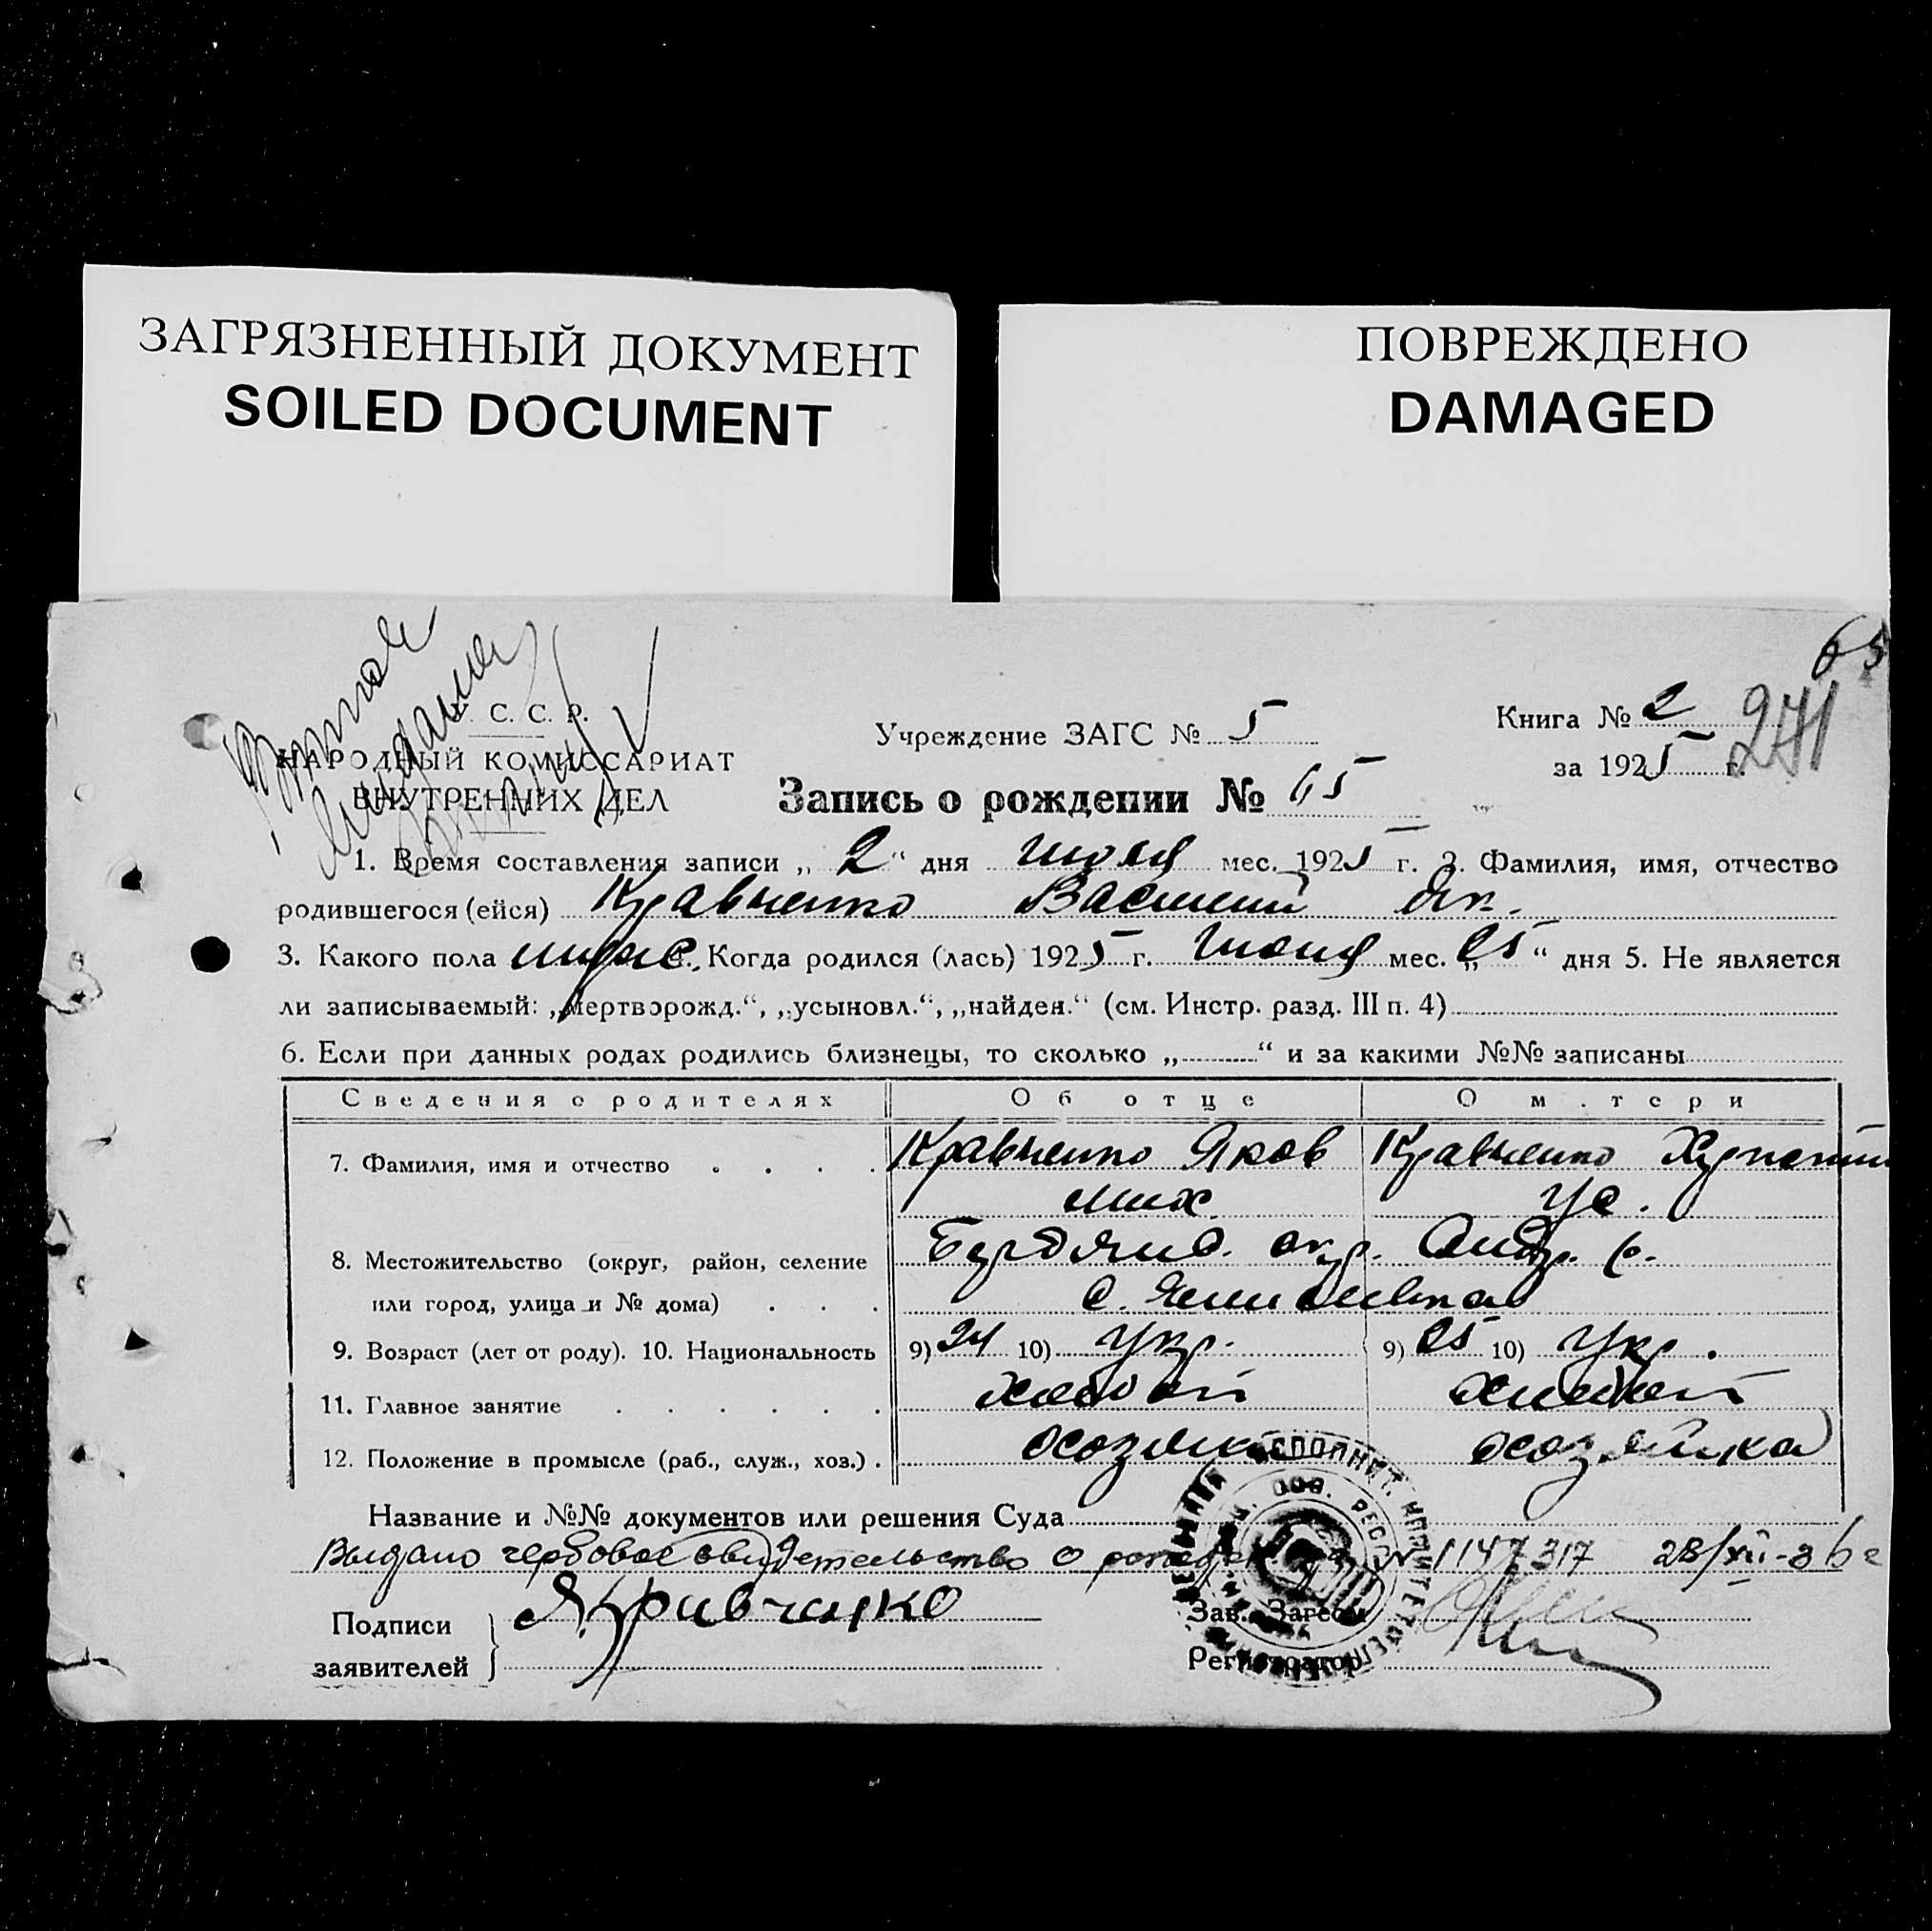 ЗАГРЯЗНЕННЫЙ ДОКУМЕНТ
SOILED DOCUMENT
ПОВРЕЖДЕНО
DAMAGED
65
241
У. С. С. Р.
НАРОДНЫЙ КОМИССАРИАТ
ВНУТРЕННИХ ДЕЛ
Учреждение ЗАГС № 5
Книга № 2
за 1925 г.
Запись о рождении № 65
1. Время составления записи „ 2 “ дня июля мес. 1925 г. 2. Фамилия, имя, отчество
родившегося (ейся) Кравченко Василий Як.
3. Какого пола 4. Когда родился (лась) 1925 г. мес. „ 25 “ дня 5. Не является
ли записываемый: „мертворожд.“, „усыновл.“, „найден.“ (см. Инстр. разд. III п. 4)
6. Если при данных родах родились близнецы, то сколько „ “ и за какими №№ записаны
Сведения о родителях Об отце О м.тери
7. Фамилия, имя и отчество Кравченко Яков Кравченко
Мих.
8. Местожительство (округ, район, селение Бердянс. окр. р.
или город, улица и № дома) с.
9. Возраст (лет от роду). 10. Национальность 9) 24 10) Укр. 9) 25 10) Укр.
11. Главное занятие
12. Положение в промысле (раб., служ., хоз.) хозяин хозяйка
Название и №№ документов или решения Суда
Выдано гербовое свидетельство о № 1147317 28/XII-36 г
Подписи
заявителей
Я. Кравченко
Зав. Загсом
Регистратор